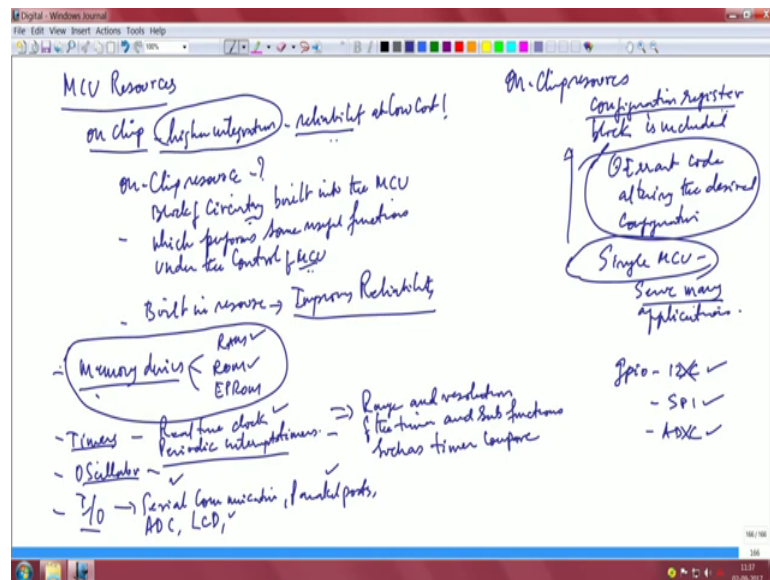 Digital - Windows Journal
File Edit View Insert Actions Tools Help
100%
MCU Resources
on chip - higher integration - reliability at low cost!
on-Chip resource - ?
Block of Circuitry built into the MCU
- which performs some useful functions
under the Control of MCU
- Built in resource → Improves Reliability
- Memory devices < RAM ✓
ROM ✓
EPROM
- Timers - Real time clock ✓
Periodic interrupt timers.
⇒ Range and resolution
of the timer and sub functions
such as timer compare
- Oscillator - ✓
- I/O → Serial Communication, Parallel ports,
ADC, LCD, ✓
On-Chip resources
Configuration register
block is included
① Errant code
altering the desired
Configuration
Single MCU -
Serve many
applications.
gpio - I2C ✓
- SPI ✓
- ADC ✓
166/166
166
11:37
02-06-2017